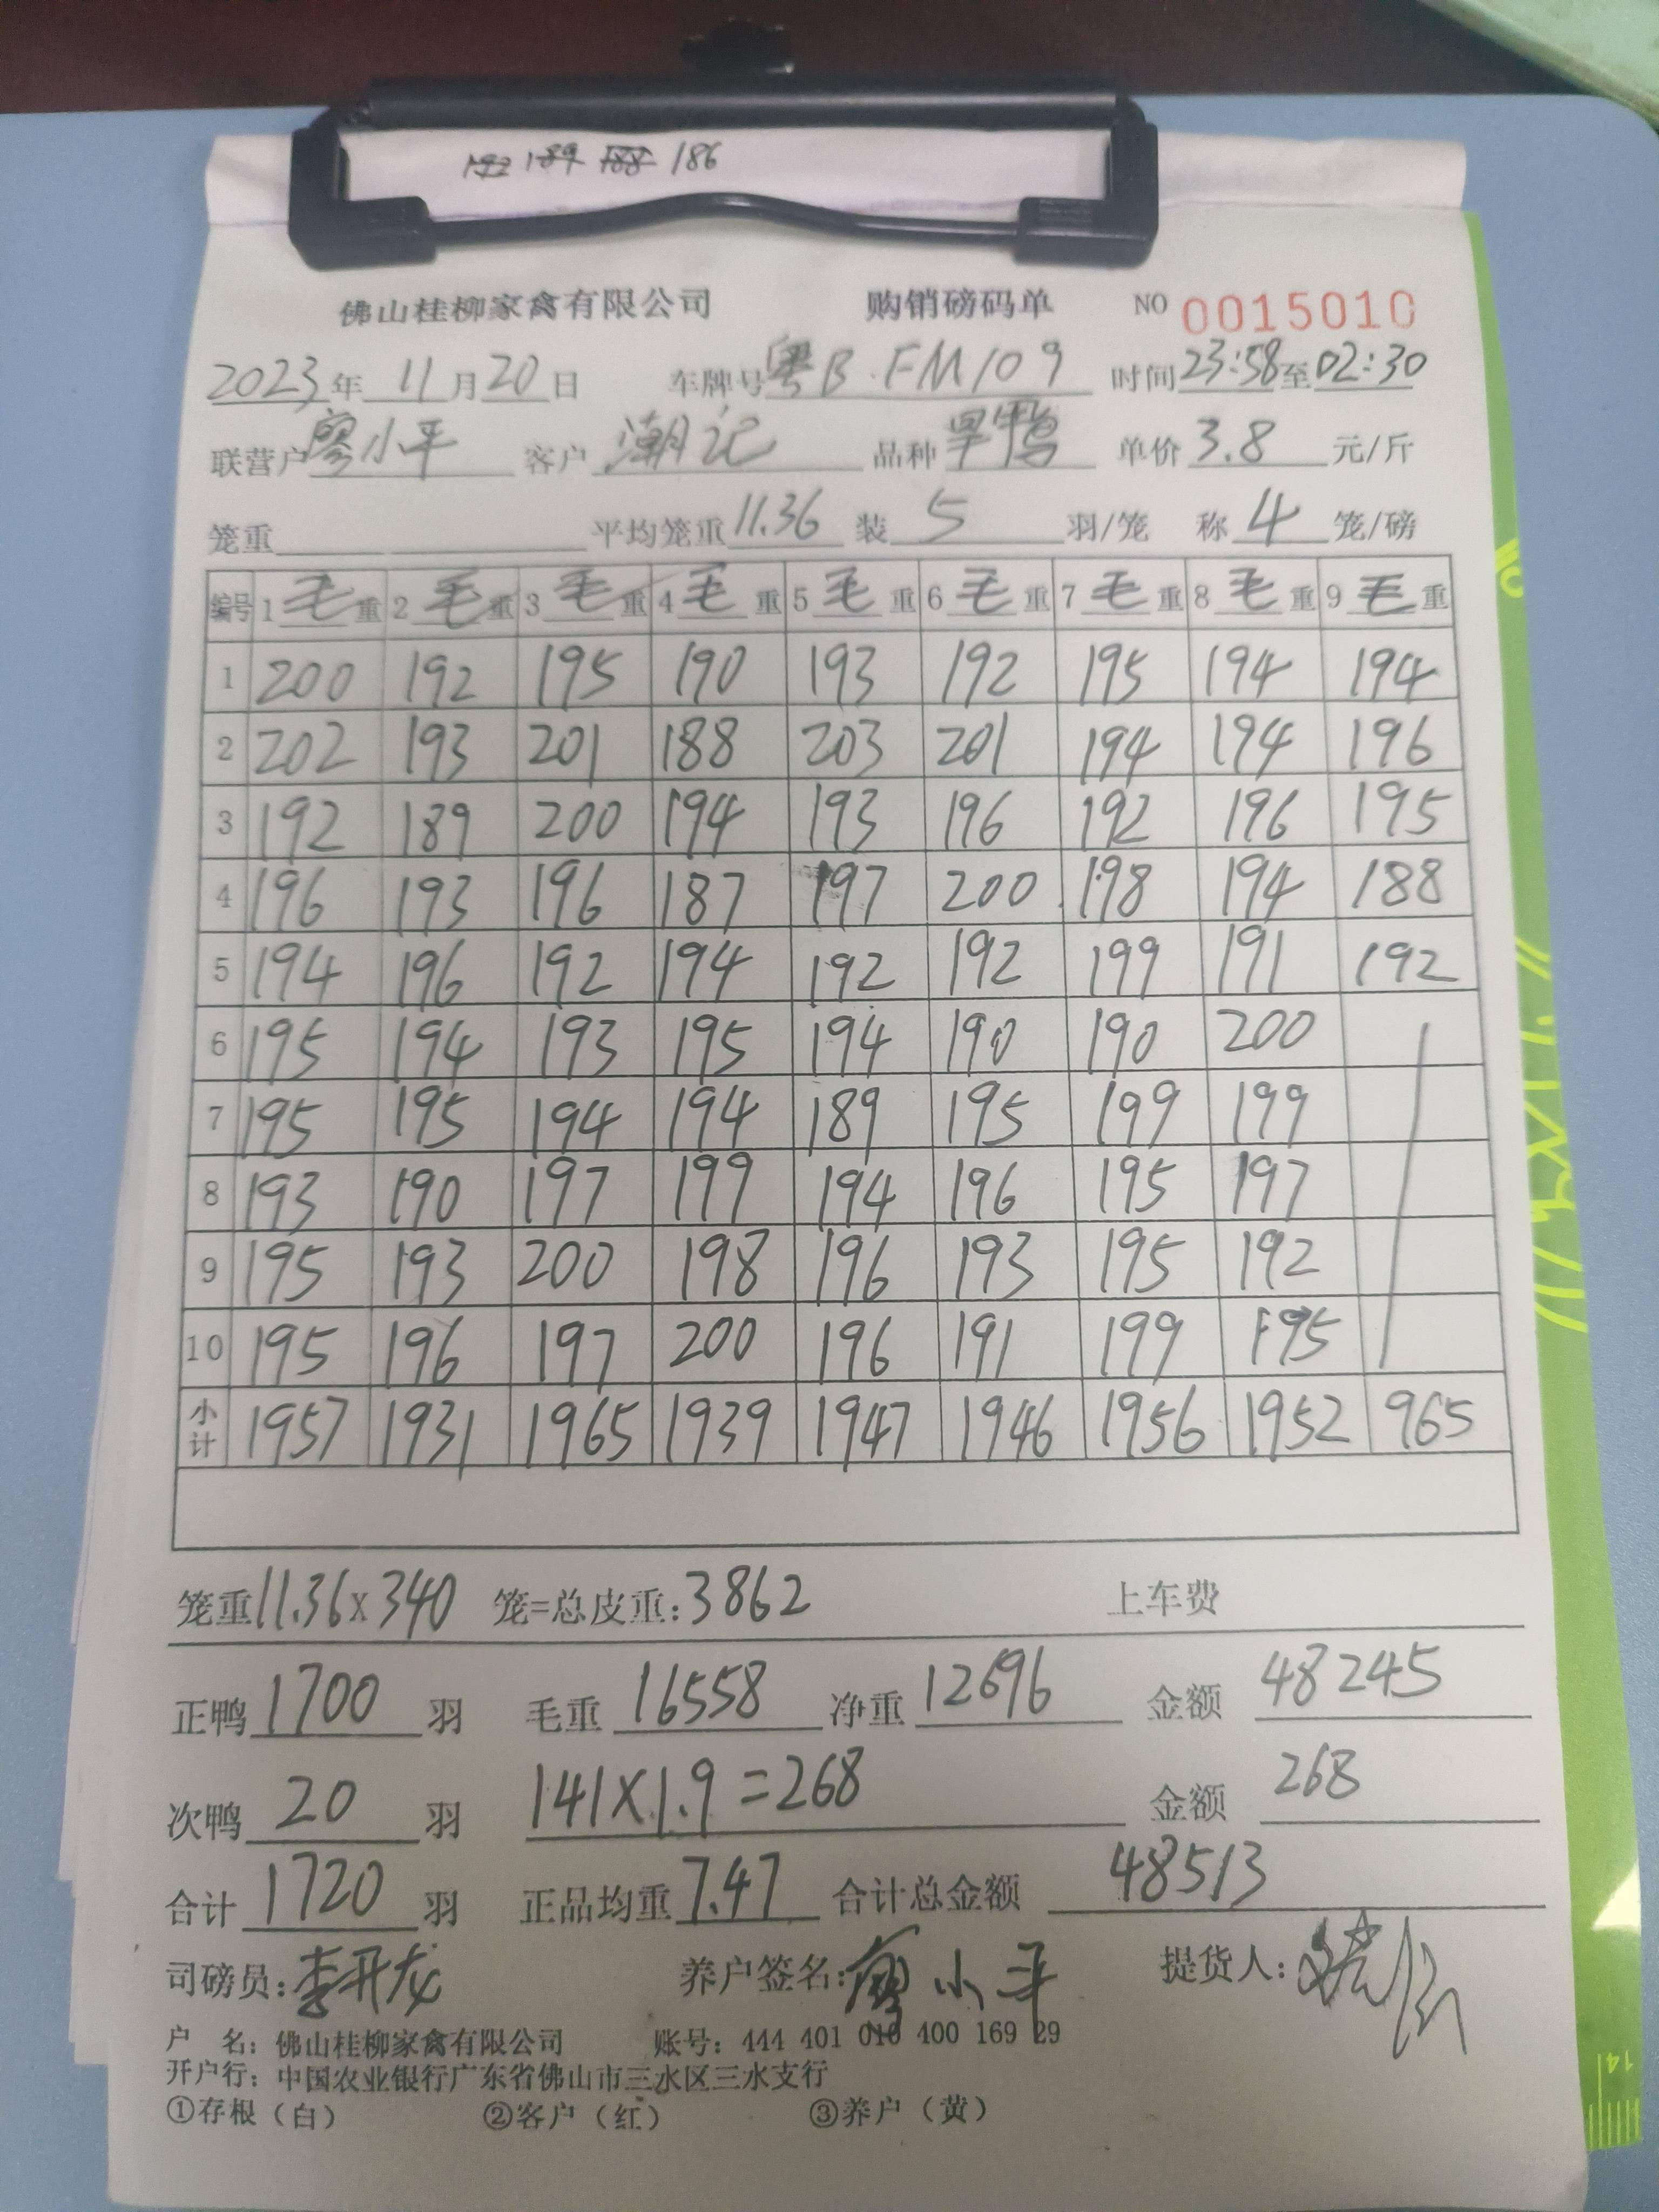 192 189 188 186
佛山桂柳家禽有限公司 购销磅码单 NO 0015010
2023年 11月20日 车牌号粤B.FM109 时间23:58至02:30
联营户廖小平 客户 潮记 品种旱鸭 单价3.8 元/斤
笼重 平均笼重11.36 装 5 羽/笼 称 4 笼/磅
编号 1毛重 2毛重 3毛重 4毛重 5毛重 6毛重 7毛重 8毛重 9毛重
1 200 192 195 190 193 192 195 194 194
2 202 193 201 188 203 201 194 194 196
3 192 189 200 194 193 196 192 196 195
4 196 193 196 187 197 200 198 194 188
5 194 196 192 194 192 192 199 191 192
6 195 194 193 195 194 190 190 200
7 195 195 194 194 189 195 199 199
8 193 190 197 199 194 196 195 197
9 195 193 200 198 196 193 195 192
10 195 196 197 200 196 191 199 195
小计 1957 1931 1965 1939 1947 1946 1956 1952 965
笼重11.36x340 笼=总皮重:3862 上车费
正鸭 1700 羽 毛重 16558 净重 12696 金额 48245
次鸭 20 羽 141X1.9=268 金额 268
合计 1720 羽 正品均重 7.47 合计总金额 48513
司磅员:李开龙 养户签名:廖小平 提货人:
户 名: 佛山桂柳家禽有限公司 账号: 444 401 010 400 169 29
开户行: 中国农业银行广东省佛山市三水区三水支行
①存根(白) ②客户(红) ③养户(黄)
14